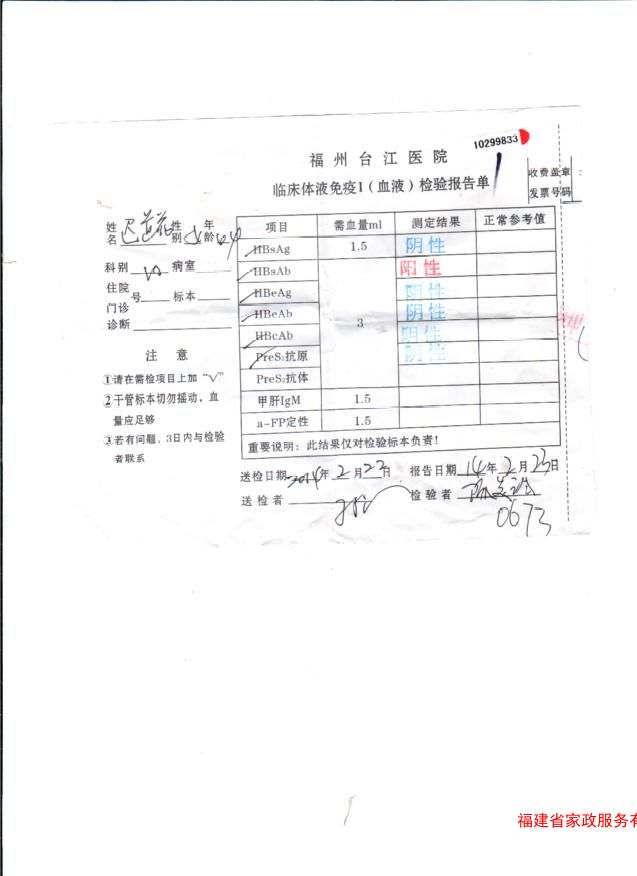 10299833
福州台江医院
临床体液免疫I(血液)检验报告单
收费盖章
发票号码
姓名 性别 女 年龄 64
科别 内 病室
住院
门诊 号 标本
诊断
注意
①请在需检项目上加“√”
②干管标本切勿摇动、血
量应足够
③若有问题、3日内与检验
者联系
项目 需血量ml 测定结果 正常参考值
HBsAg 1.5 阴性
HBsAb 阳性
HBeAg 阴性
HBeAb 3 阴性
HBcAb 阴性
PreS₁抗原 阴性
PreS₂抗体
甲肝IgM 1.5
a-FP定性 1.5
重要说明:此结果仅对检验标本负责!
送检日期 2014年2月23日 报告日期 14年2月23日
送检者 检验者
0673
福建省家政服务有